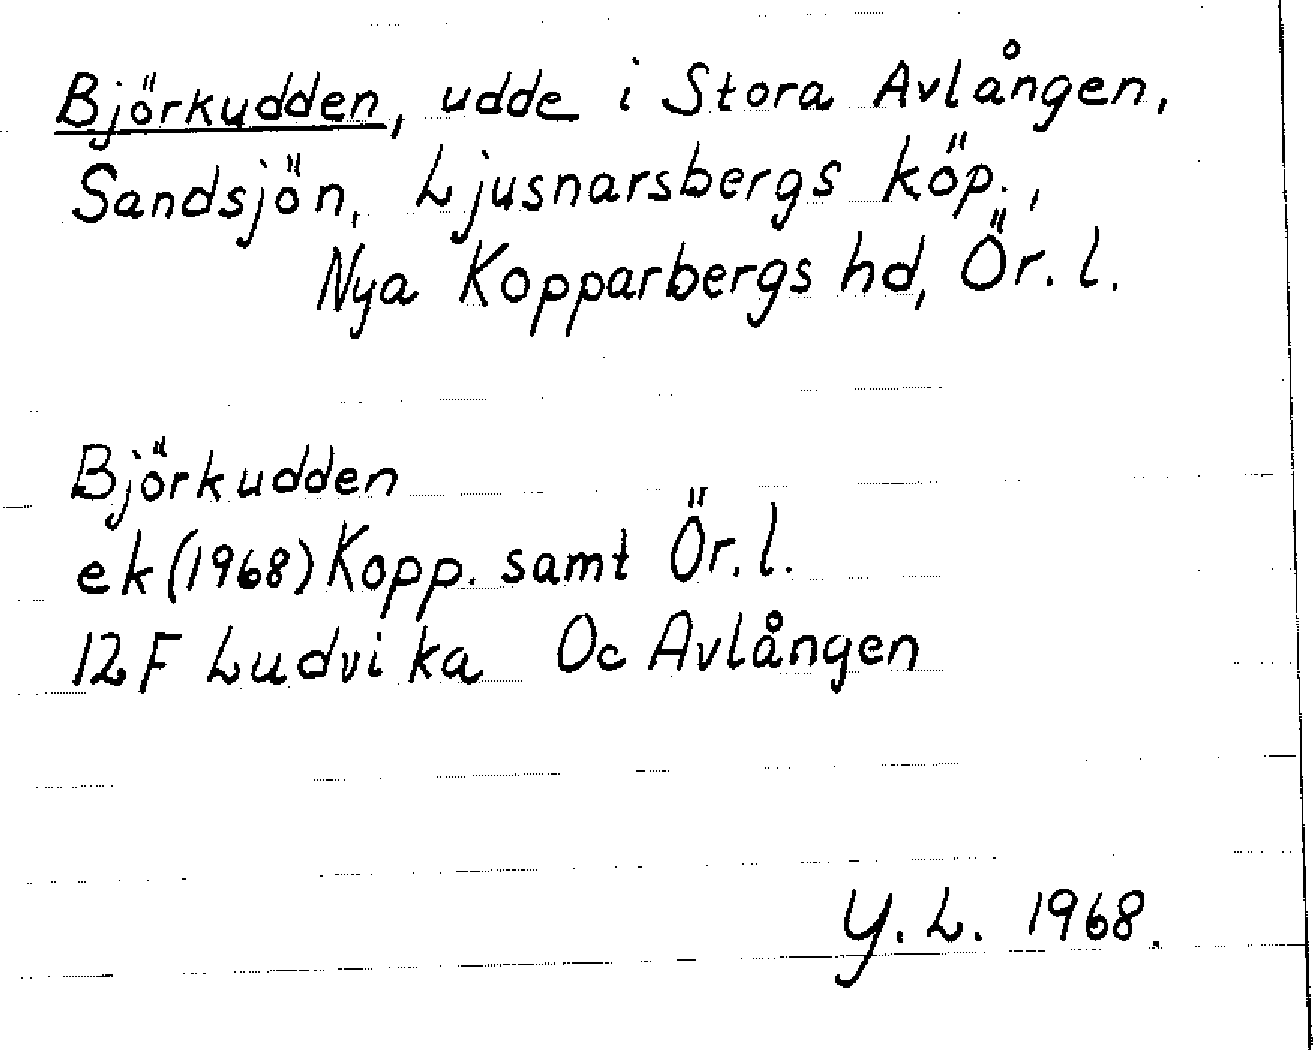 Björkudden, udde i Stora Avlången,
Sandsjön, Ljusnarsbergs köp.,
Nya Kopparbergs hd, Ör. l.
Björkudden
ek (1968) Kopp. samt Ör. l.
12F Ludvika Oc Avlången
Y. L. 1968.